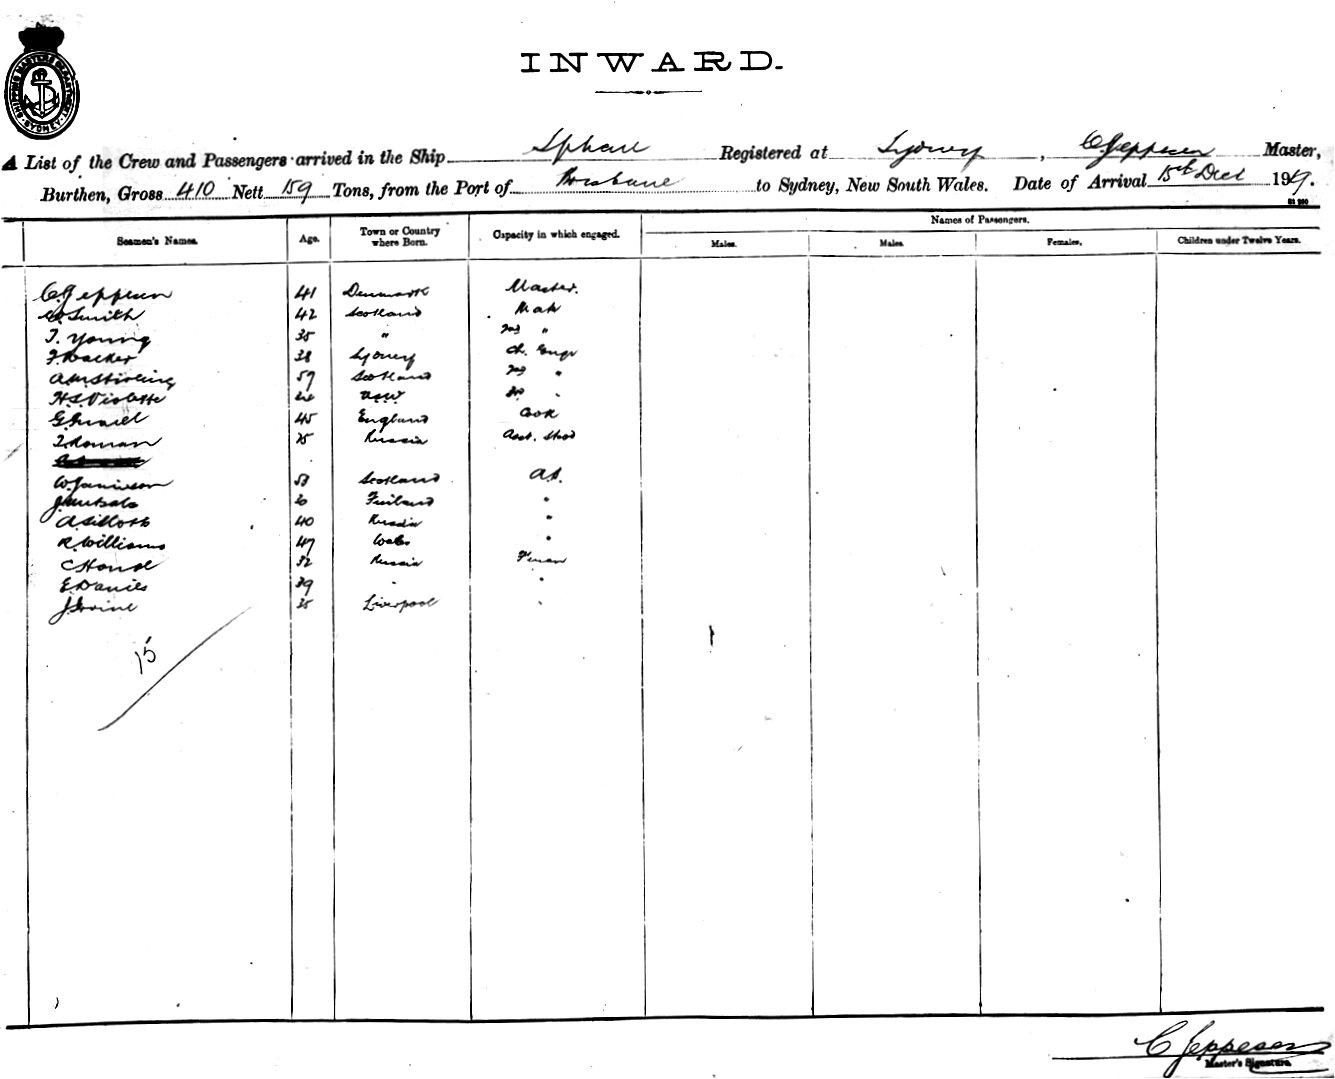 SHIPPING MASTER'S DEPARTMENT
SYDNEY
INWARD.
A List of the Crew and Passengers arrived in the Ship Registered at Sydney, C Jeppesen Master,
Burthen, Gross 410 Nett 159 Tons, from the Port of Brisbane to Sydney, New South Wales. Date of Arrival 15th Dec 19
Names of Passengers.
Seamen's Names. Age. Town or Country where Born. Capacity in which engaged. Males. Males. Females. Children under Twelve Years.
C Jeppesen 41 Denmark Master.
Smith 42 Scotland Mate
T. Young 35 " 2nd "
38 Sydney Ch. Engr
A M Stirling 59 Scotland 2nd "
H S Violette N.S.W. 3rd "
45 England Cook
Roman 25 Russia Asst. Stwd
W. Jamieson 53 Scotland A.B.
Finland "
40 Russia "
R. Williams 47 Wales "
C Hond 32 Russia Fireman
E Davies 39 "
J. Irvine 25 Liverpool "
15
C Jeppesen
Master's Signature.